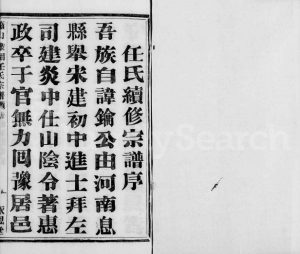 任氏續修宗譜序
吾族自諱鑰公由河南息
縣舉宋建初中進士拜左
司建炎中仕山陰令著惠
政卒于官無力回豫居邑